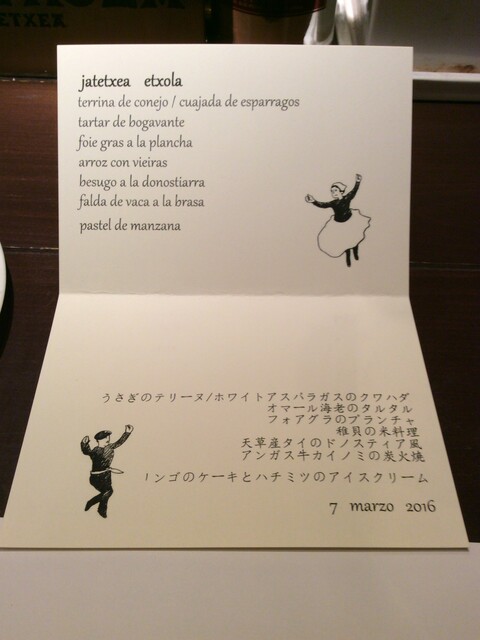 ETXER
jatetxea etxola
terrina de conejo / cuajada de esparragos
tartar de bogavante
foie gras a la plancha
arroz con vieiras
besugo a la donostiarra
falda de vaca a la brasa
pastel de manzana
うさぎのテリーヌ/ホワイトアスパラガスのクワハダ
オマール海老のタルタル
フォアグラのプランチャ
稚貝の米料理
天草産タイのドノスティア風
アンガス牛カイノミの炭火焼
リンゴのケーキとハチミツのアイスクリーム
7 marzo 2016